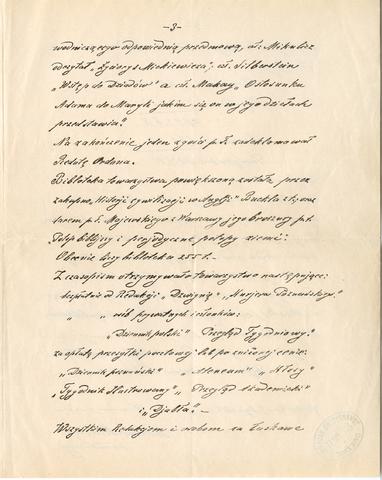 -3-
wodniczącego odpowiednią przedmową, cł. Mikulisz
odczytał „Życiorys Mickiewicza", cł. Silberstein
„Wstęp do Dziadów" a cł. Makay „O stosunku
Adama do Maryli jakim się on w jego dziełach
przedstawia."
Na zakończenie jeden z gości p. J. zadeklamował
Redutę Ordona.
Biblioteka towarzystwa powiększoną została przez
zakupno „Historji cywilizacji w Anglji" Buckla i t.
darem p. J. Majewskiego z Warszawy jego broszury p. t.
Potop biblijny i perjodyczne potopy ziemi:
Obecnie liczy biblioteka 255 t. -
Z czasopism otrzymywało towarzystwo następujące:
bezpłatnie od Redakcji „Dźwignię", „Kurjera Poznańskiego"
„ „ osób prywatnych i członków:
„Dziennik polski" „Przegląd Tygodniowy"
za opłatą przesyłki pocztowej lub po zniżonej cenie:
„Dziennik poznański" „Ateneum" „Kłosy"
„Tygodnik Illustrowany" „Przegląd Akademicki"
i „Djabła". -
Wszystkim Redakcjom i osobom za łaskawe